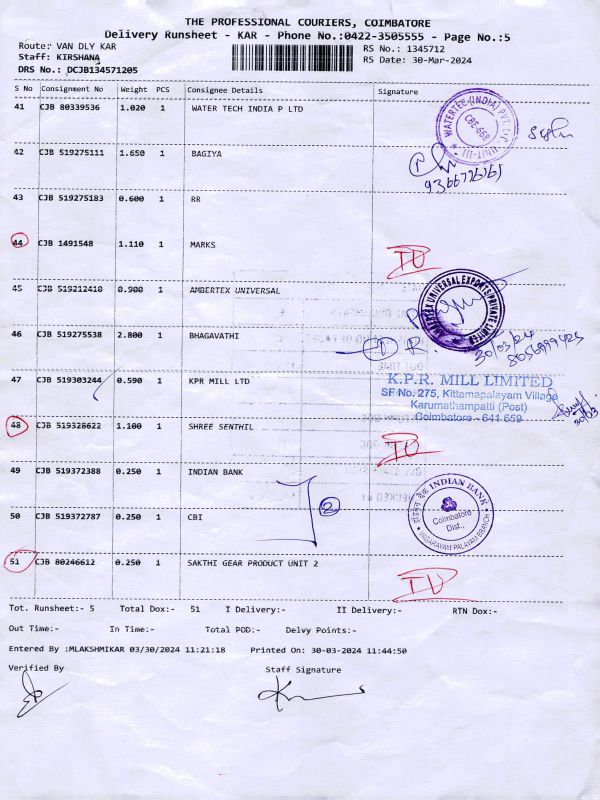 THE PROFESSIONAL COURIERS, COIMBATORE
Delivery Runsheet - KAR - Phone No.:0422-3505555 - Page No.:5
Route: VAN DLY KAR RS No.: 1345712
Staff: KIRSHANA RS Date: 30-Mar-2024
DRS No.: DCJB134571205
S No Consignment No Weight PCS Consignee Details Signature
41 CJB 80339536 1.020 1 WATER TECH INDIA P LTD
WATERTEC (INDIA) PVT. LTD. UNIT-III
CBE-668
42 CJB 519275111 1.650 1 BAGIYA
43 CJB 519275183 0.600 1 RR
44 CJB 1491548 1.110 1 MARKS
45 CJB 519212410 0.900 1 AMBERTEX UNIVERSAL
AMBERTEX UNIVERSAL EXPORTS PRIVATE LIMITED
46 CJB 519275538 2.800 1 BHAGAVATHI
30/03/24
47 CJB 519303244 0.590 1 KPR MILL LTD
K.P.R. MILL LIMITED
SF No. 275, Kittamapalayam Village
Karumathampatti (Post)
Coimbatore - 641 659
48 CJB 519328622 1.100 1 SHREE SENTHIL
49 CJB 519372388 0.250 1 INDIAN BANK
INDIAN BANK
Coimbatore
Dist.,
50 CJB 519372787 0.250 1 CBI
2
51 CJB 80246612 0.250 1 SAKTHI GEAR PRODUCT UNIT 2
Tot. Runsheet:- 5 Total Dox:- 51 I Delivery:- II Delivery:- RTN Dox:-
Out Time:- In Time:- Total POD:- Delvy Points:-
Entered By :MLAKSHMIKAR 03/30/2024 11:21:18 Printed On: 30-03-2024 11:44:50
Verified By Staff Signature